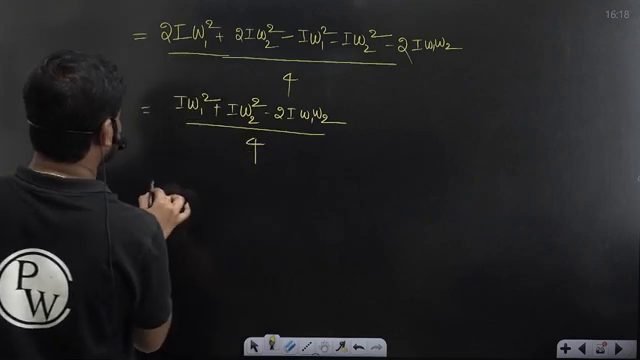 16:18
= 2Iω₁² + 2Iω₂² - Iω₁² - Iω₂² - 2Iω₁ω₂
4
= Iω₁² + Iω₂² - 2Iω₁ω₂
4
P
W